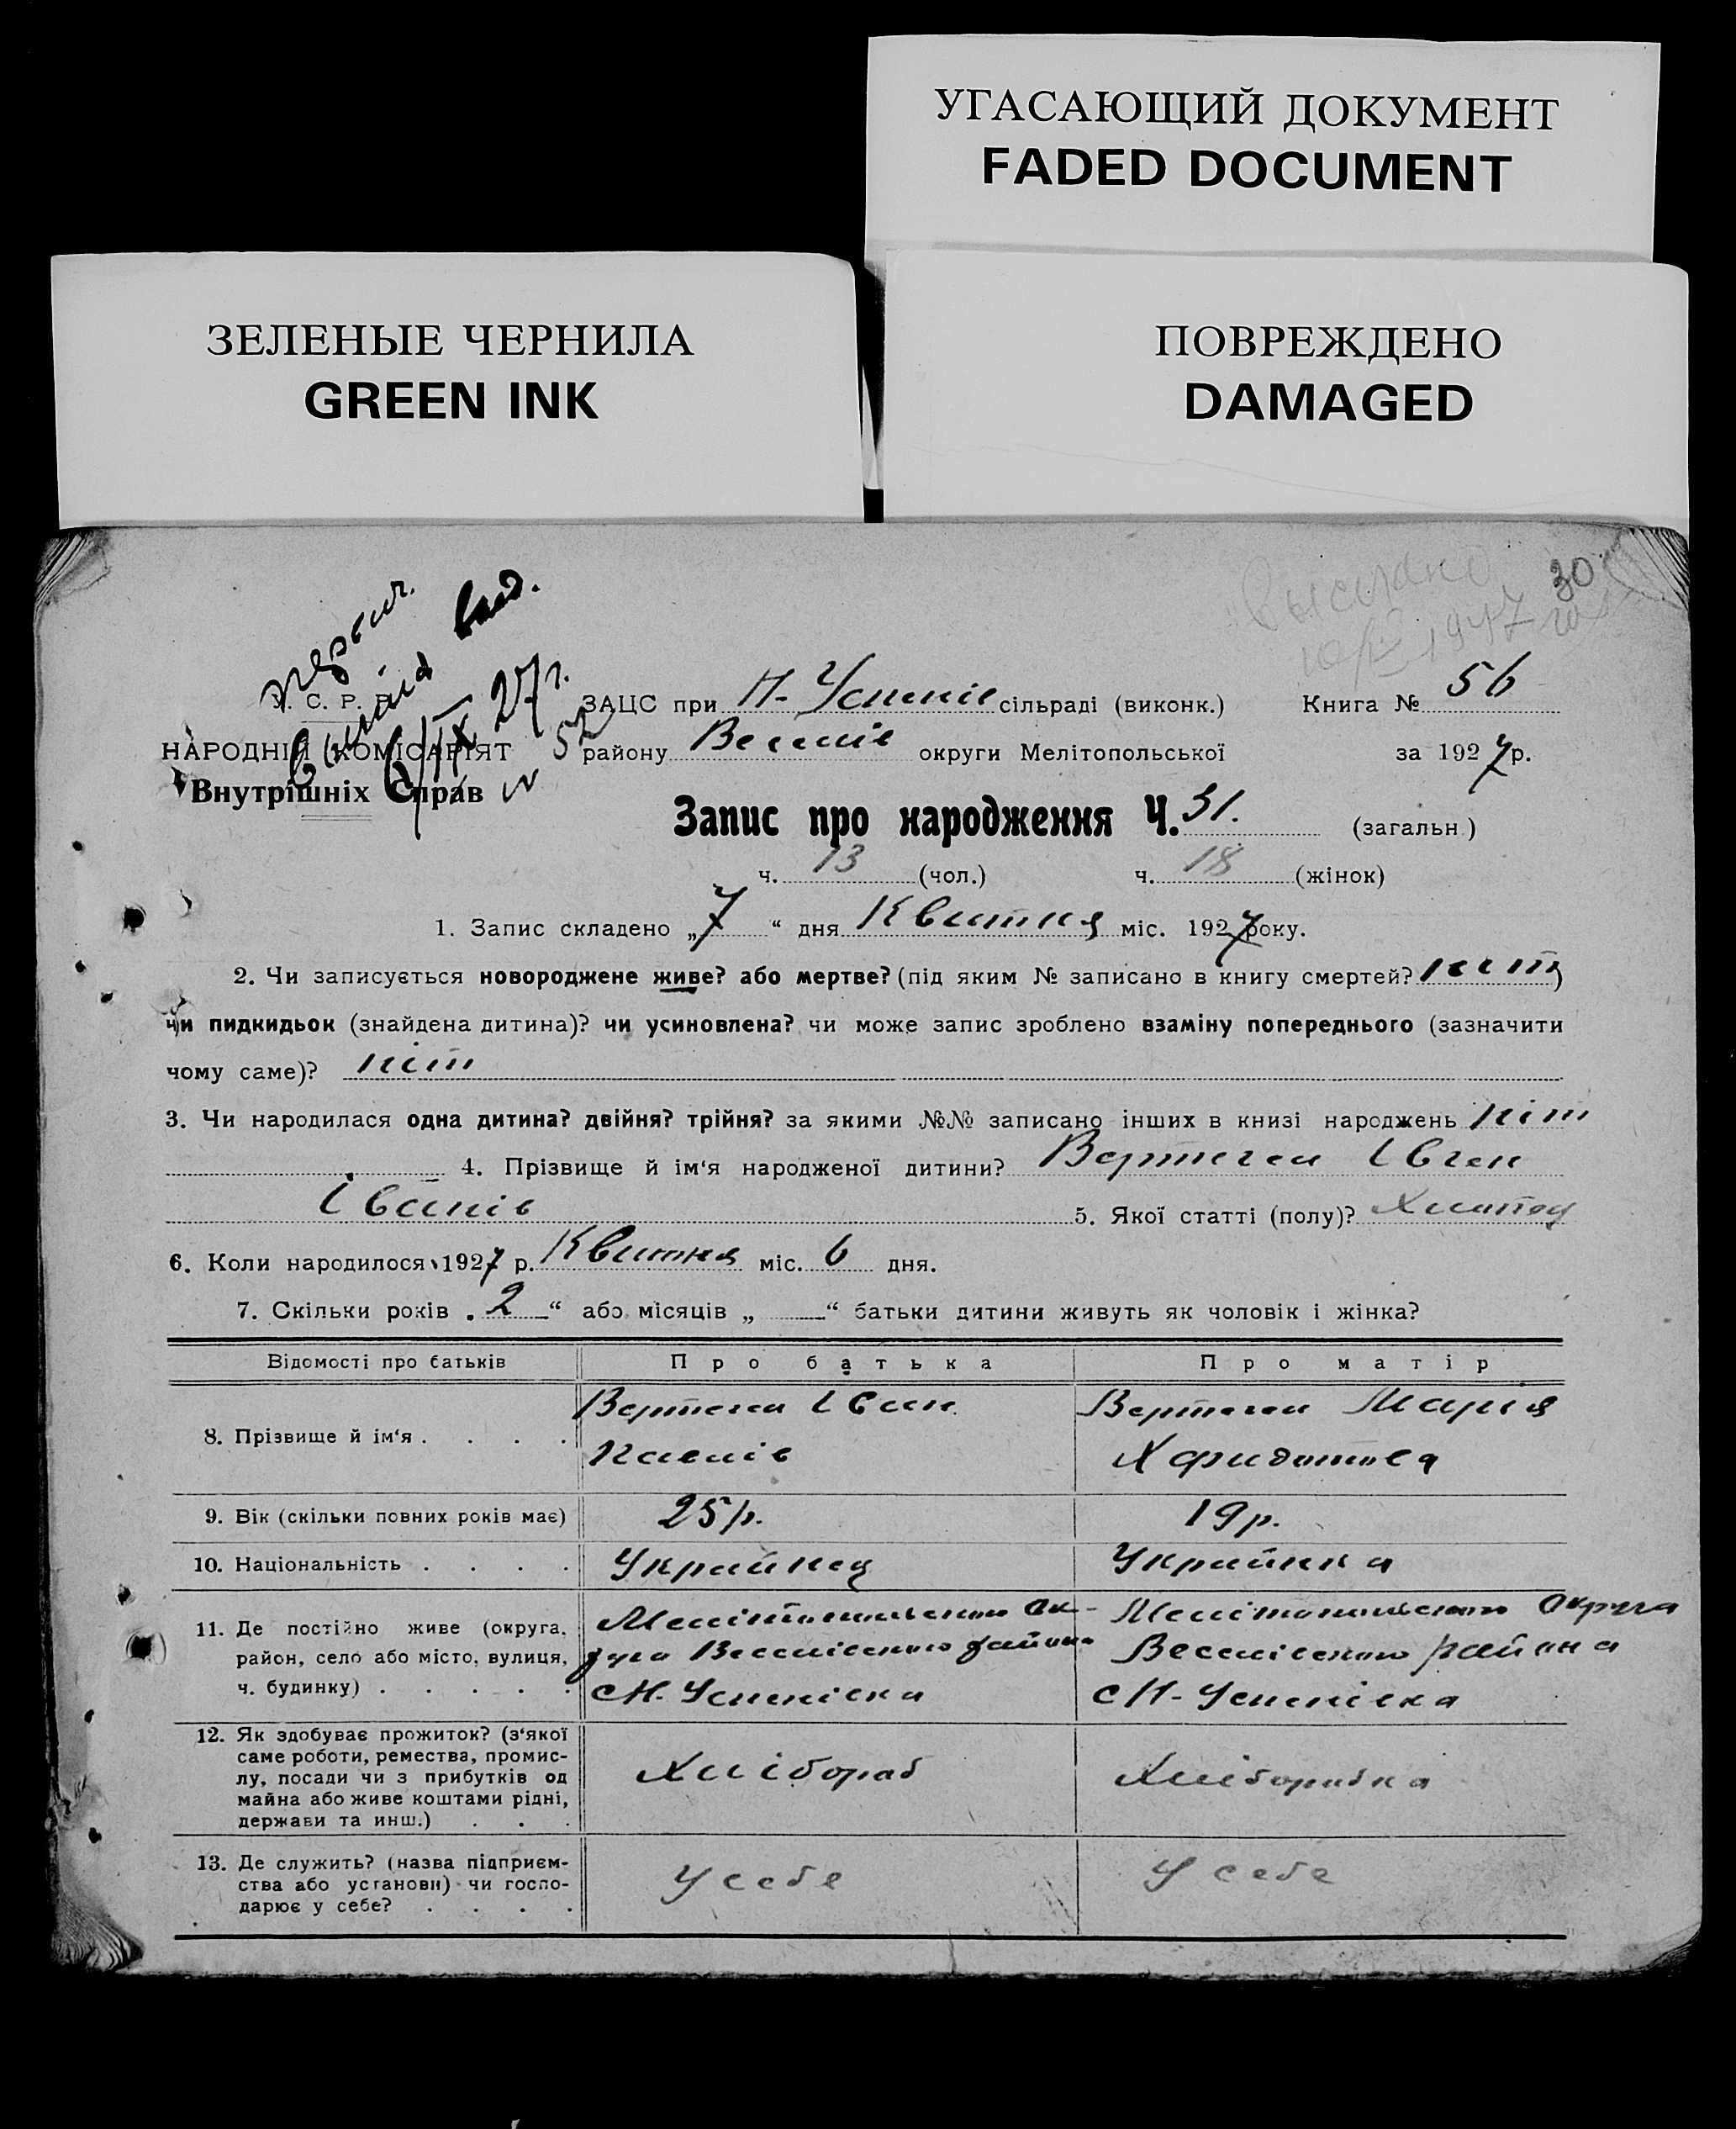 УГАСАЮЩИЙ ДОКУМЕНТ
FADED DOCUMENT
ЗЕЛЕНЫЕ ЧЕРНИЛА
GREEN INK
ПОВРЕЖДЕНО
DAMAGED
30
1947
27 г.
52
С. Р. Р.
НАРОДНІЙ КОМІСАРІЯТ
Внутрішніх Справ
ЗАЦС при Н-Успенів сільраді (виконк.) Книга № 56
району Веселів округи Мелітопольської за 1927 р.
Запис про народження Ч. 31. (загальн.)
ч. 13 (чол.) ч. 18 (жінок)
1. Запис складено „7“ дня Квитня міс. 1927 року.
2. Чи записується новороджене живе? або мертве? (під яким № записано в книгу смертей? ніт)
чи пидкидьок (знайдена дитина)? чи усиновлена? чи може запис зроблено взаміну попереднього (зазначити
чому саме)? ніт
3. Чи народилася одна дитина? двійня? трійня? за якими №№ записано інших в книзі народжень ніт
4. Прізвище й ім‘я народженої дитини? Вертегел Івген
Іванів 5. Якої статті (полу)? Хлопец
6. Коли народилося 1927 р. Квитня міс. 6 дня.
7. Скільки років „2“ або місяців „—“ батьки дитини живуть як чоловік і жінка?
Відомості про батьків Про батька Про матір
8. Прізвище й ім‘я . . . . Вертегел Іван Вертегел Марія
Павлів Харитонова
9. Вік (скільки повних років має) 25 р. 19 р.
10. Національність . . . . Украйнец Украйнка
11. Де постійно живе (округа, Мелітопольскои Ок- Мелітопольскои Округа
район, село або місто, вулиця, руга Веселівского района Веселівского района
ч. будинку) . . . . . с Н-Успенівка с Н-Успенівка
12. Як здобуває прожиток? (з‘якої
саме роботи, ремества, промис-
лу, посади чи з прибутків од Хлібороб Хліборобка
майна або живе коштами рідні,
держави та инш.) . . .
13. Де служить? (назва підприєм-
ства або установи) чи госпо- У себе У себе
дарює у себе? . . . .